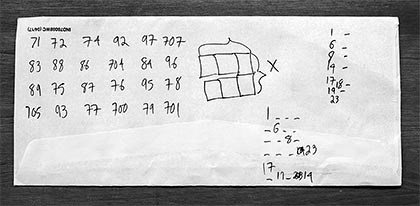 71 72 74 92 97 707
83 88 86 704 84 96
89 75 87 76 95 78
705 93 77 700 79 701
X
1 -
6 -
8 -
14 -
17 18 -
19 -
23
1 - - -
- 6 - -
- - 8 -
- - - 23
17